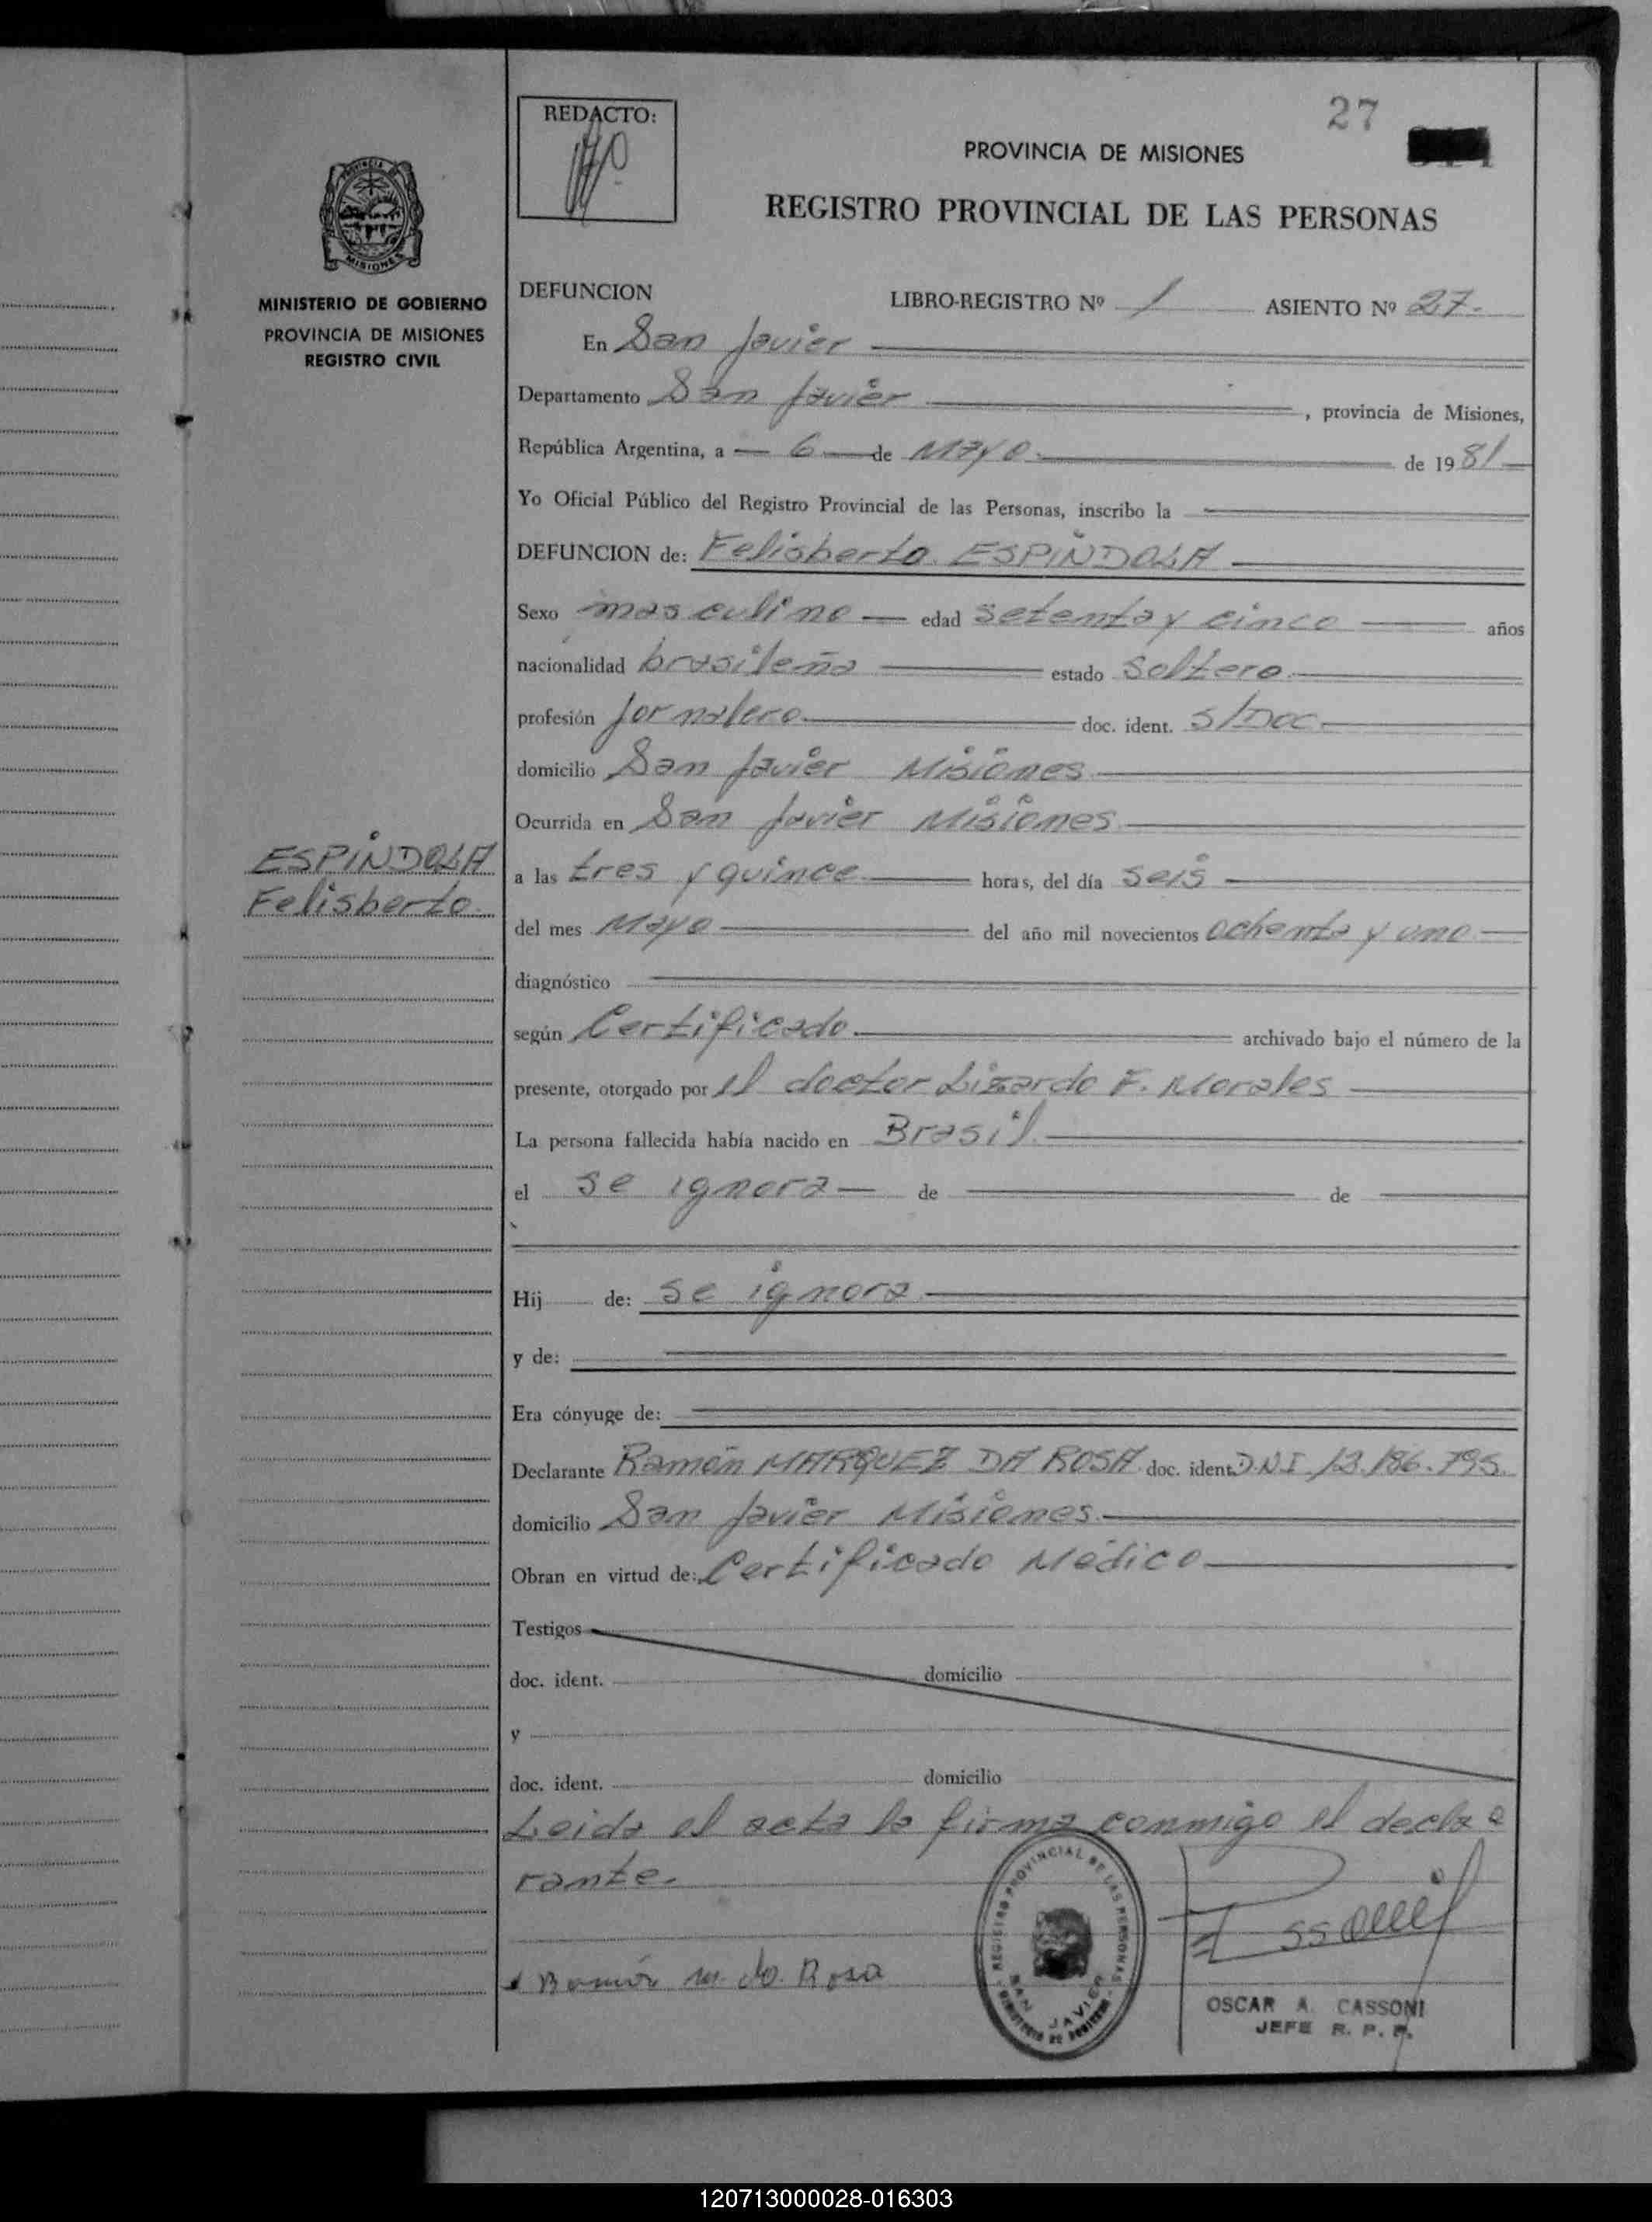 27
REDACTO:
PROVINCIA DE MISIONES
REGISTRO PROVINCIAL DE LAS PERSONAS
MINISTERIO DE GOBIERNO
PROVINCIA DE MISIONES
REGISTRO CIVIL
DEFUNCION LIBRO-REGISTRO Nº 1 ASIENTO Nº 27.
En San Javier
Departamento San Javier, provincia de Misiones,
República Argentina, a 6 de Mayo de 1981
Yo Oficial Público del Registro Provincial de las Personas, inscribo la
DEFUNCION de: Felisberto ESPINDOLA
Sexo masculino edad setenta y cinco años
nacionalidad brasileña estado Soltero
profesión Jornalero doc. ident. S/Doc.
domicilio San Javier Misiones
Ocurrida en San Javier Misiones
ESPINDOLA
Felisberto
a las tres y quince horas, del día seis
del mes Mayo del año mil novecientos ochenta y uno
diagnóstico
según Certificado archivado bajo el número de la
presente, otorgado por el doctor Lizardo F. Morales
La persona fallecida había nacido en Brasil
el se ignora de de
Hij de: se ignora
y de:
Era cónyuge de:
Declarante Ramón MARQUEZ DA ROSA doc. ident. D.N.I 13.186.795.
domicilio San Javier Misiones
Obran en virtud de: Certificado Médico
Testigos
doc. ident. domicilio
y
doc. ident. domicilio
Leida el acta la firma conmigo el decla
rante.
Ramón m. da Rosa
REGISTRO PROVINCIAL DE LAS PERSONAS
SAN JAVIER
MINISTERIO DE GOBIERNO
OSCAR A. CASSONI
JEFE R. P. P.
120713000028-016303